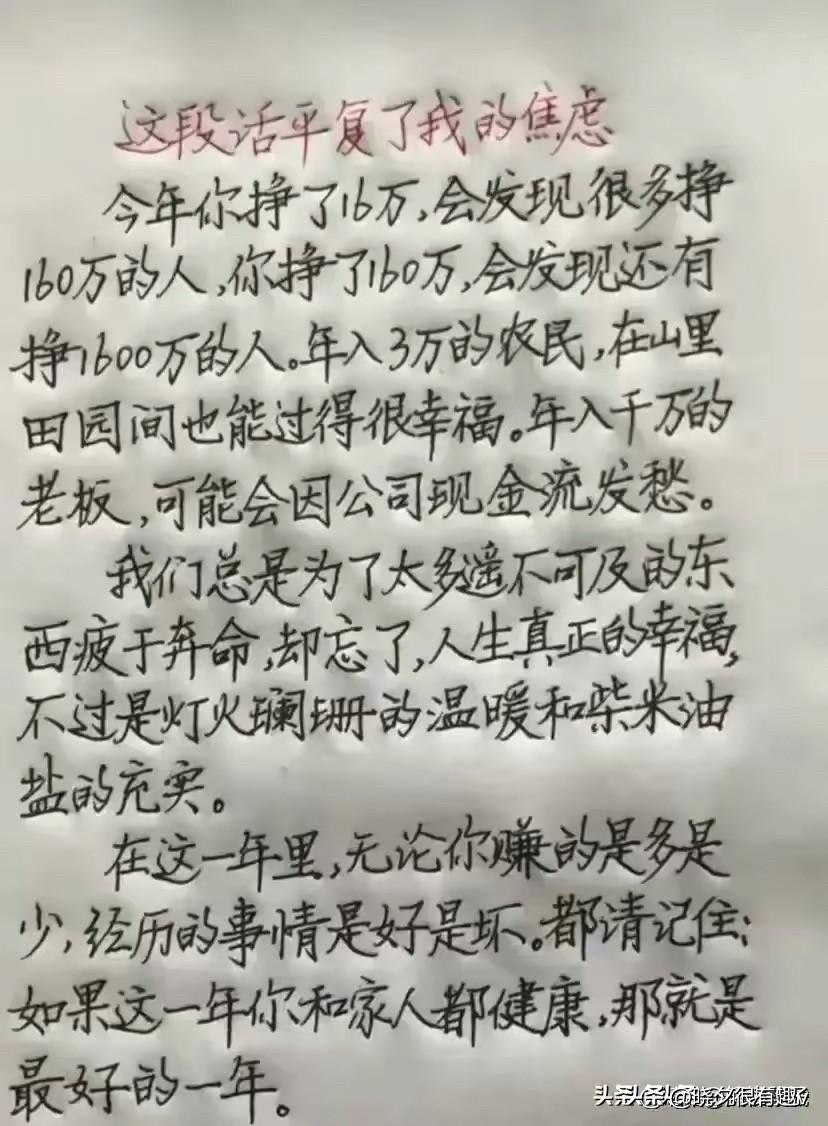 这段话平复了我的焦虑
今年你挣了16万,会发现很多挣
160万的人,你挣了160万,会发现还有
挣1600万的人。年入3万的农民,在山里
田园间也能过得很幸福。年入千万的
老板,可能会因公司现金流发愁。
我们总是为了太多遥不可及的东
西疲于奔命,却忘了,人生真正的幸福,
不过是灯火斓珊的温暖和柴米油
盐的充实。
在这一年里,无论你赚的是多是
少,经历的事情是好是坏。都请记住:
如果这一年你和家人都健康,那就是
最好的一年。
头条 @晓夕很有趣